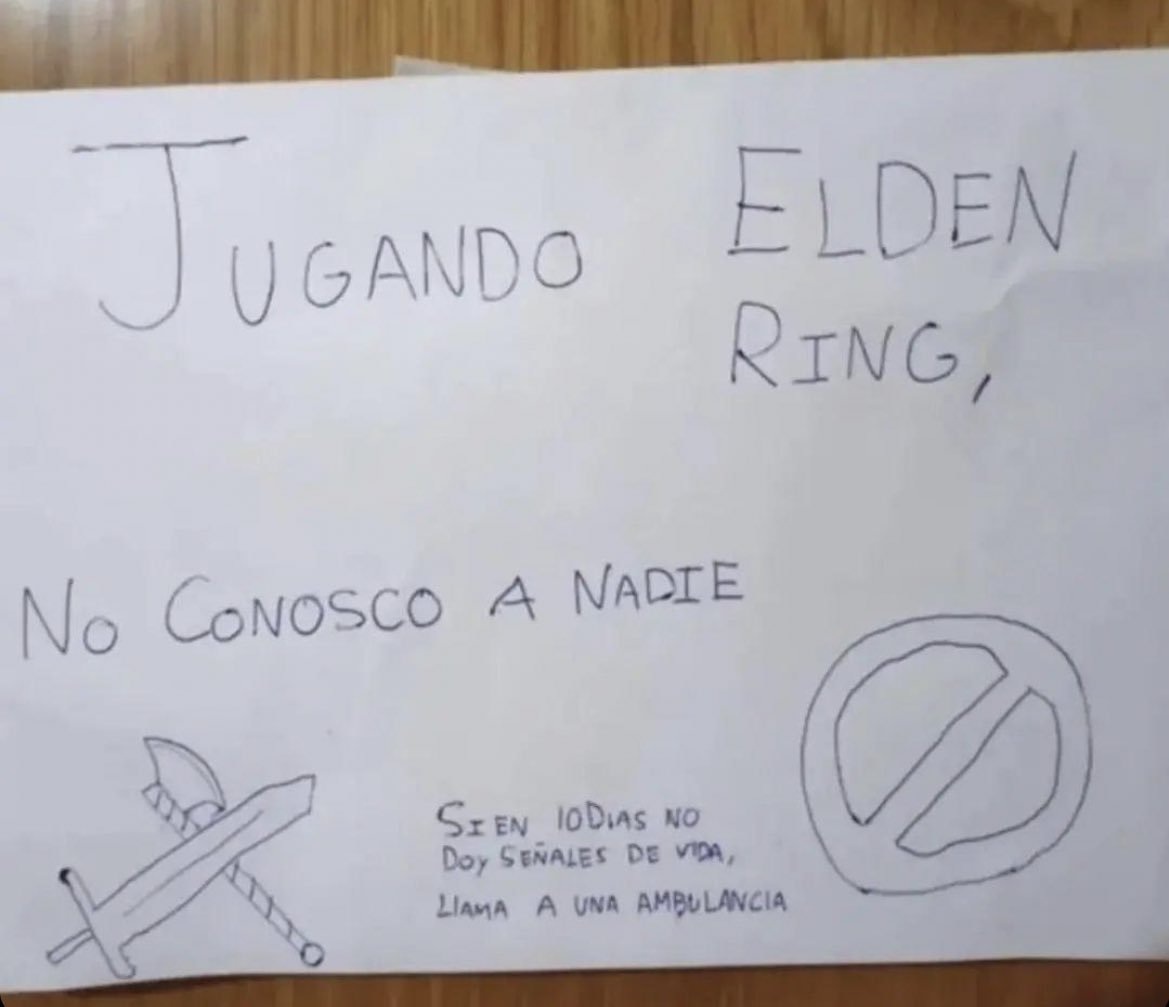 JUGANDO ELDEN
RING,
NO CONOSCO A NADIE
SI EN 10 DIAS NO
DOY SEÑALES DE VIDA,
LLAMA A UNA AMBULANCIA